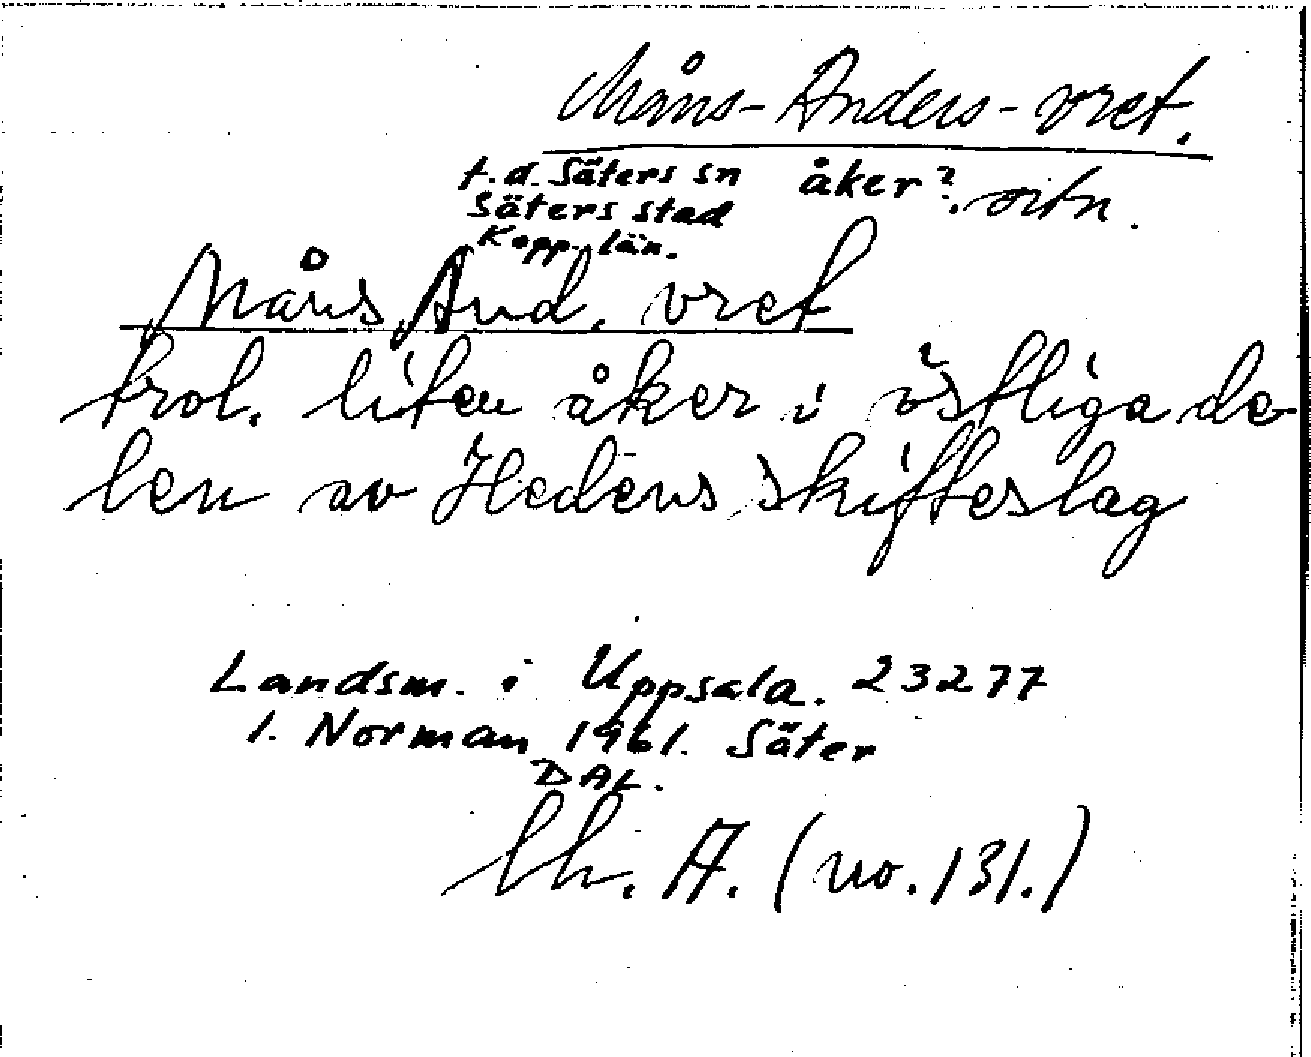 Måns-Anders-vret.
t.d. Säters sn åker?
Säters stad
Kopp. län.
Måns And. vret
trol. liten åker i östliga de-
len av Hedens skifteslag
Landsm. i Uppsala. 23277
I. Norman 1961. Säter
DAL.
lh. A. (no. 131.)